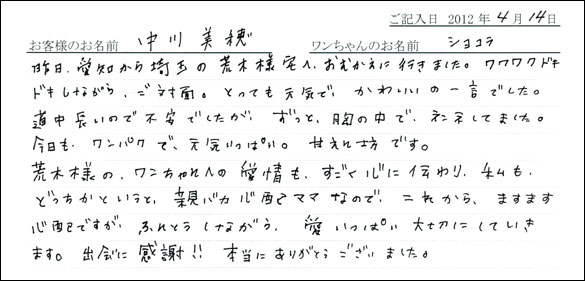 ご記入日 2012年4月14日
お客様のお名前 中川 美穂 ワンちゃんのお名前 ショコラ
昨日、愛知から埼玉の荒木様宅へ、おむかえに行きました。ワクワクドキ
ドキしながら、ご対面。とっても元気で、かわいいの一言でした。
道中長いので不安でしたが、ずっと、胸の中で、ネンネしてました。
今日も、ワンパクで、元気いっぱい。甘えん坊です。
荒木様の、ワンちゃんへの愛情も、すごく心に伝わり、私も、
どっちかというと、親バカ心配ママなので、これから、ますます
心配ですが、ふんとうしながら、愛いっぱい大切にしていき
ます。出会に感謝!!本当にありがとうございました。